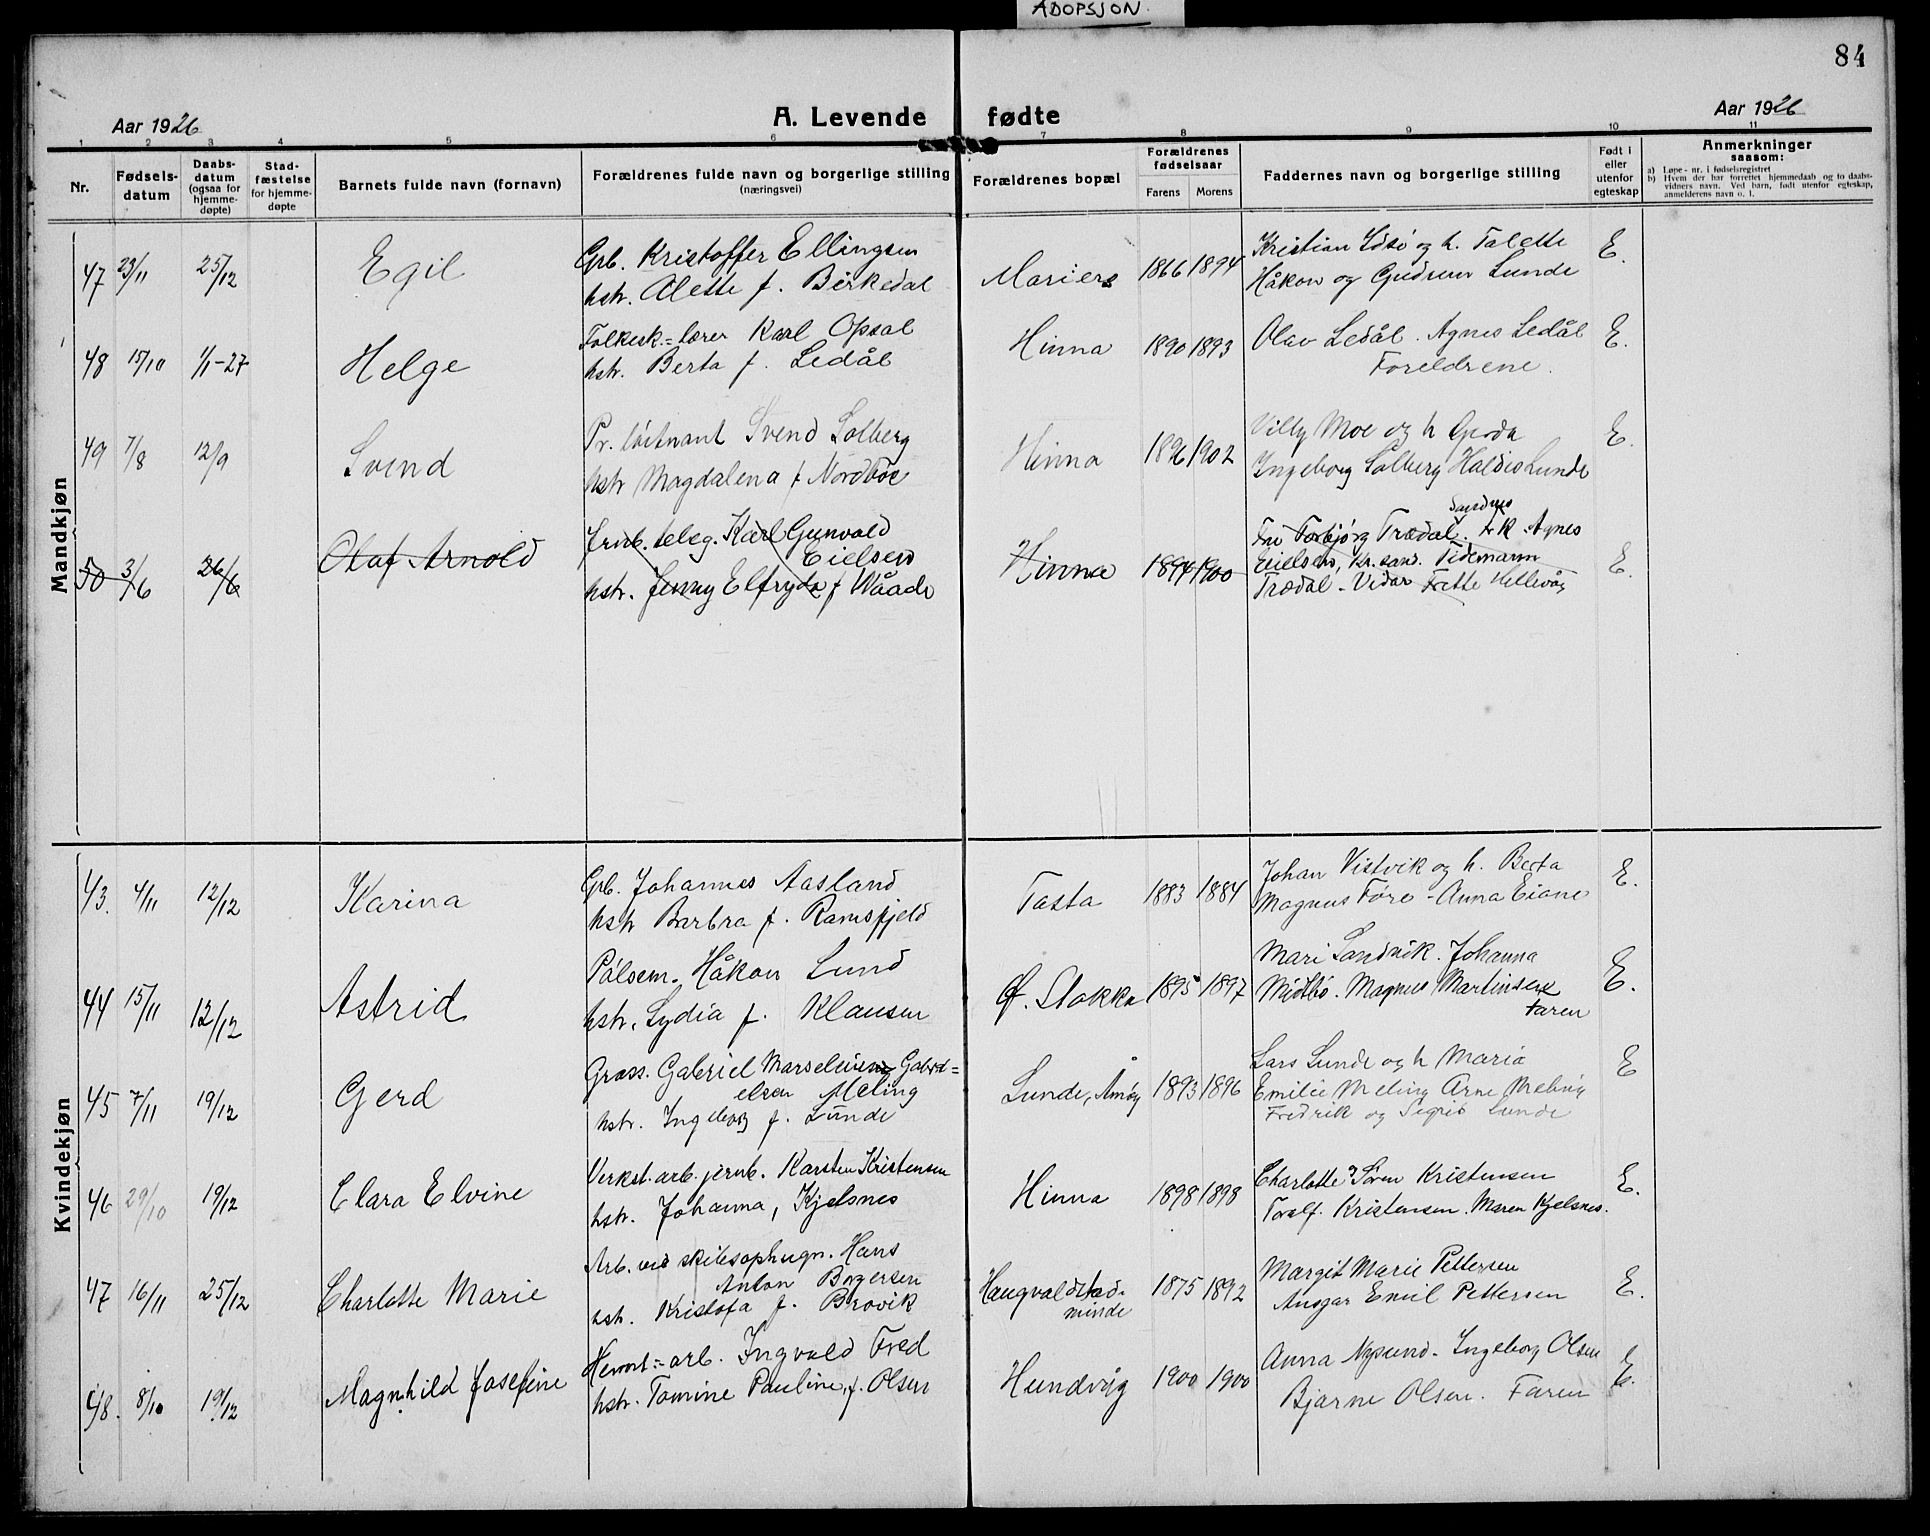 ADOPSJON.
84
Aar 1926
A. Levende fødte
Aar 1926
1 2 3 4 5 6 7 8 9 10 11
Nr.
Fødsels-
datum
Daabs-
datum
(ogsaa for
hjemme-
døpte)
Stad-
fæstelse
for hjemme-
døpte
Barnets fulde navn (fornavn)
Forældrenes fulde navn og borgerlige stilling
(næringsvei)
Forældrenes bopæl
Forældrenes
fødselsaar
Farens Morens
Faddernes navn og borgerlige stilling
Født i
eller
utenfor
egteskap
Anmerkninger
saasom:
a) Løpe-nr. i fødselsregistret
b) Hvem der har forrettet hjemmedaab og to daabs-
vidners navn. Ved barn, født utenfor egteskap,
anmelderens navn o. l.
Mandkjøn
47 23/11 25/12 Egil
Grb. Kristoffer Ellingsen
hstr. Alette f. Birkedal
Mariero 1866 1894
Kristian Idsö og h. Talette
Håkon og Gudrun Lunde
E.
48 15/10 1/1-27 Helge
Folkesk.=lærer Karl Opsal
hstr. Berta f. Ledål
Hinna 1890 1893
Olav Ledål. Agnes Ledål
Foreldrene.
E.
49 7/8 12/9 Svend
Pr. löitnant Svend Solberg
hstr Magdalena f Nordböe
Hinna 1896 1902
Villy Moe og h Gerda
Ingeborg Solberg Haldis Lunde
E.
50 3/6 26/6 Olaf Arnold
Jrnb. teleg. Karl Gunvald
Eielsen
hstr. Jenny Elfryda f Waade
Hinna 1894 1900
Sandnes
Fru Torbjørg Trædal. frk Agnes
Eielsen, Kr.sand. Tidemann
Trædal - Vidar Hellevåg
E.
Kvindekjøn
43. 4/11 12/12 Karina
Grb. Johannes Aasland
hstr Barbra f. Ramsfjeld
Tasta 1883 1884
Johan Vistvik og h. Berta
Magnus Före - Anna Eiane
E.
44 15/11 12/12 Astrid
Pölsem. Håkon Lund
hstr. Lydia f. Klausen
Ø. Stokka 1895 1897
Mari Sandvik. Johanna
Midtbö. Magnus Martinsen
Faren
E.
45 7/11 19/12 Gerd
Gross. Gabriel Marselius Gabri=
elsen Meling
hstr. Ingeborg f. Lunde
Lunde, Åmöy 1893 1896
Lars Lunde og h Maria
Emilie Meling Arne Meling
Fredrik og Sigrid Lunde
E
46 29/10 19/12 Clara Elvine
Verkst. arb. jernb. Karsten Kristensen
hstr. Johanna, Kjelsnes
Hinna 1898 1898
Charlotte Sören Kristensen
Toralf. Kristensen. Maren Kjelsnes.
E.
47 16/11 25/12 Charlotte Marie
Arb. ved skibsophugn. Hans
Anton Borgersen
hstr. Kristofa f. Brovik
Haugvaldstad-
minde
1875 1892
Margit Marie Pettersen
Ansgar Emil Pettersen
E.
48. 8/10 19/12 Magnhild Josefine
Hermt=arb. Ingvald Fred
hstr. Tomine Pauline, f. Olsen
Hundvåg 1900 1900
Anna Nysund - Ingeborg Olsen
Bjarne Olsen. Faren
E.